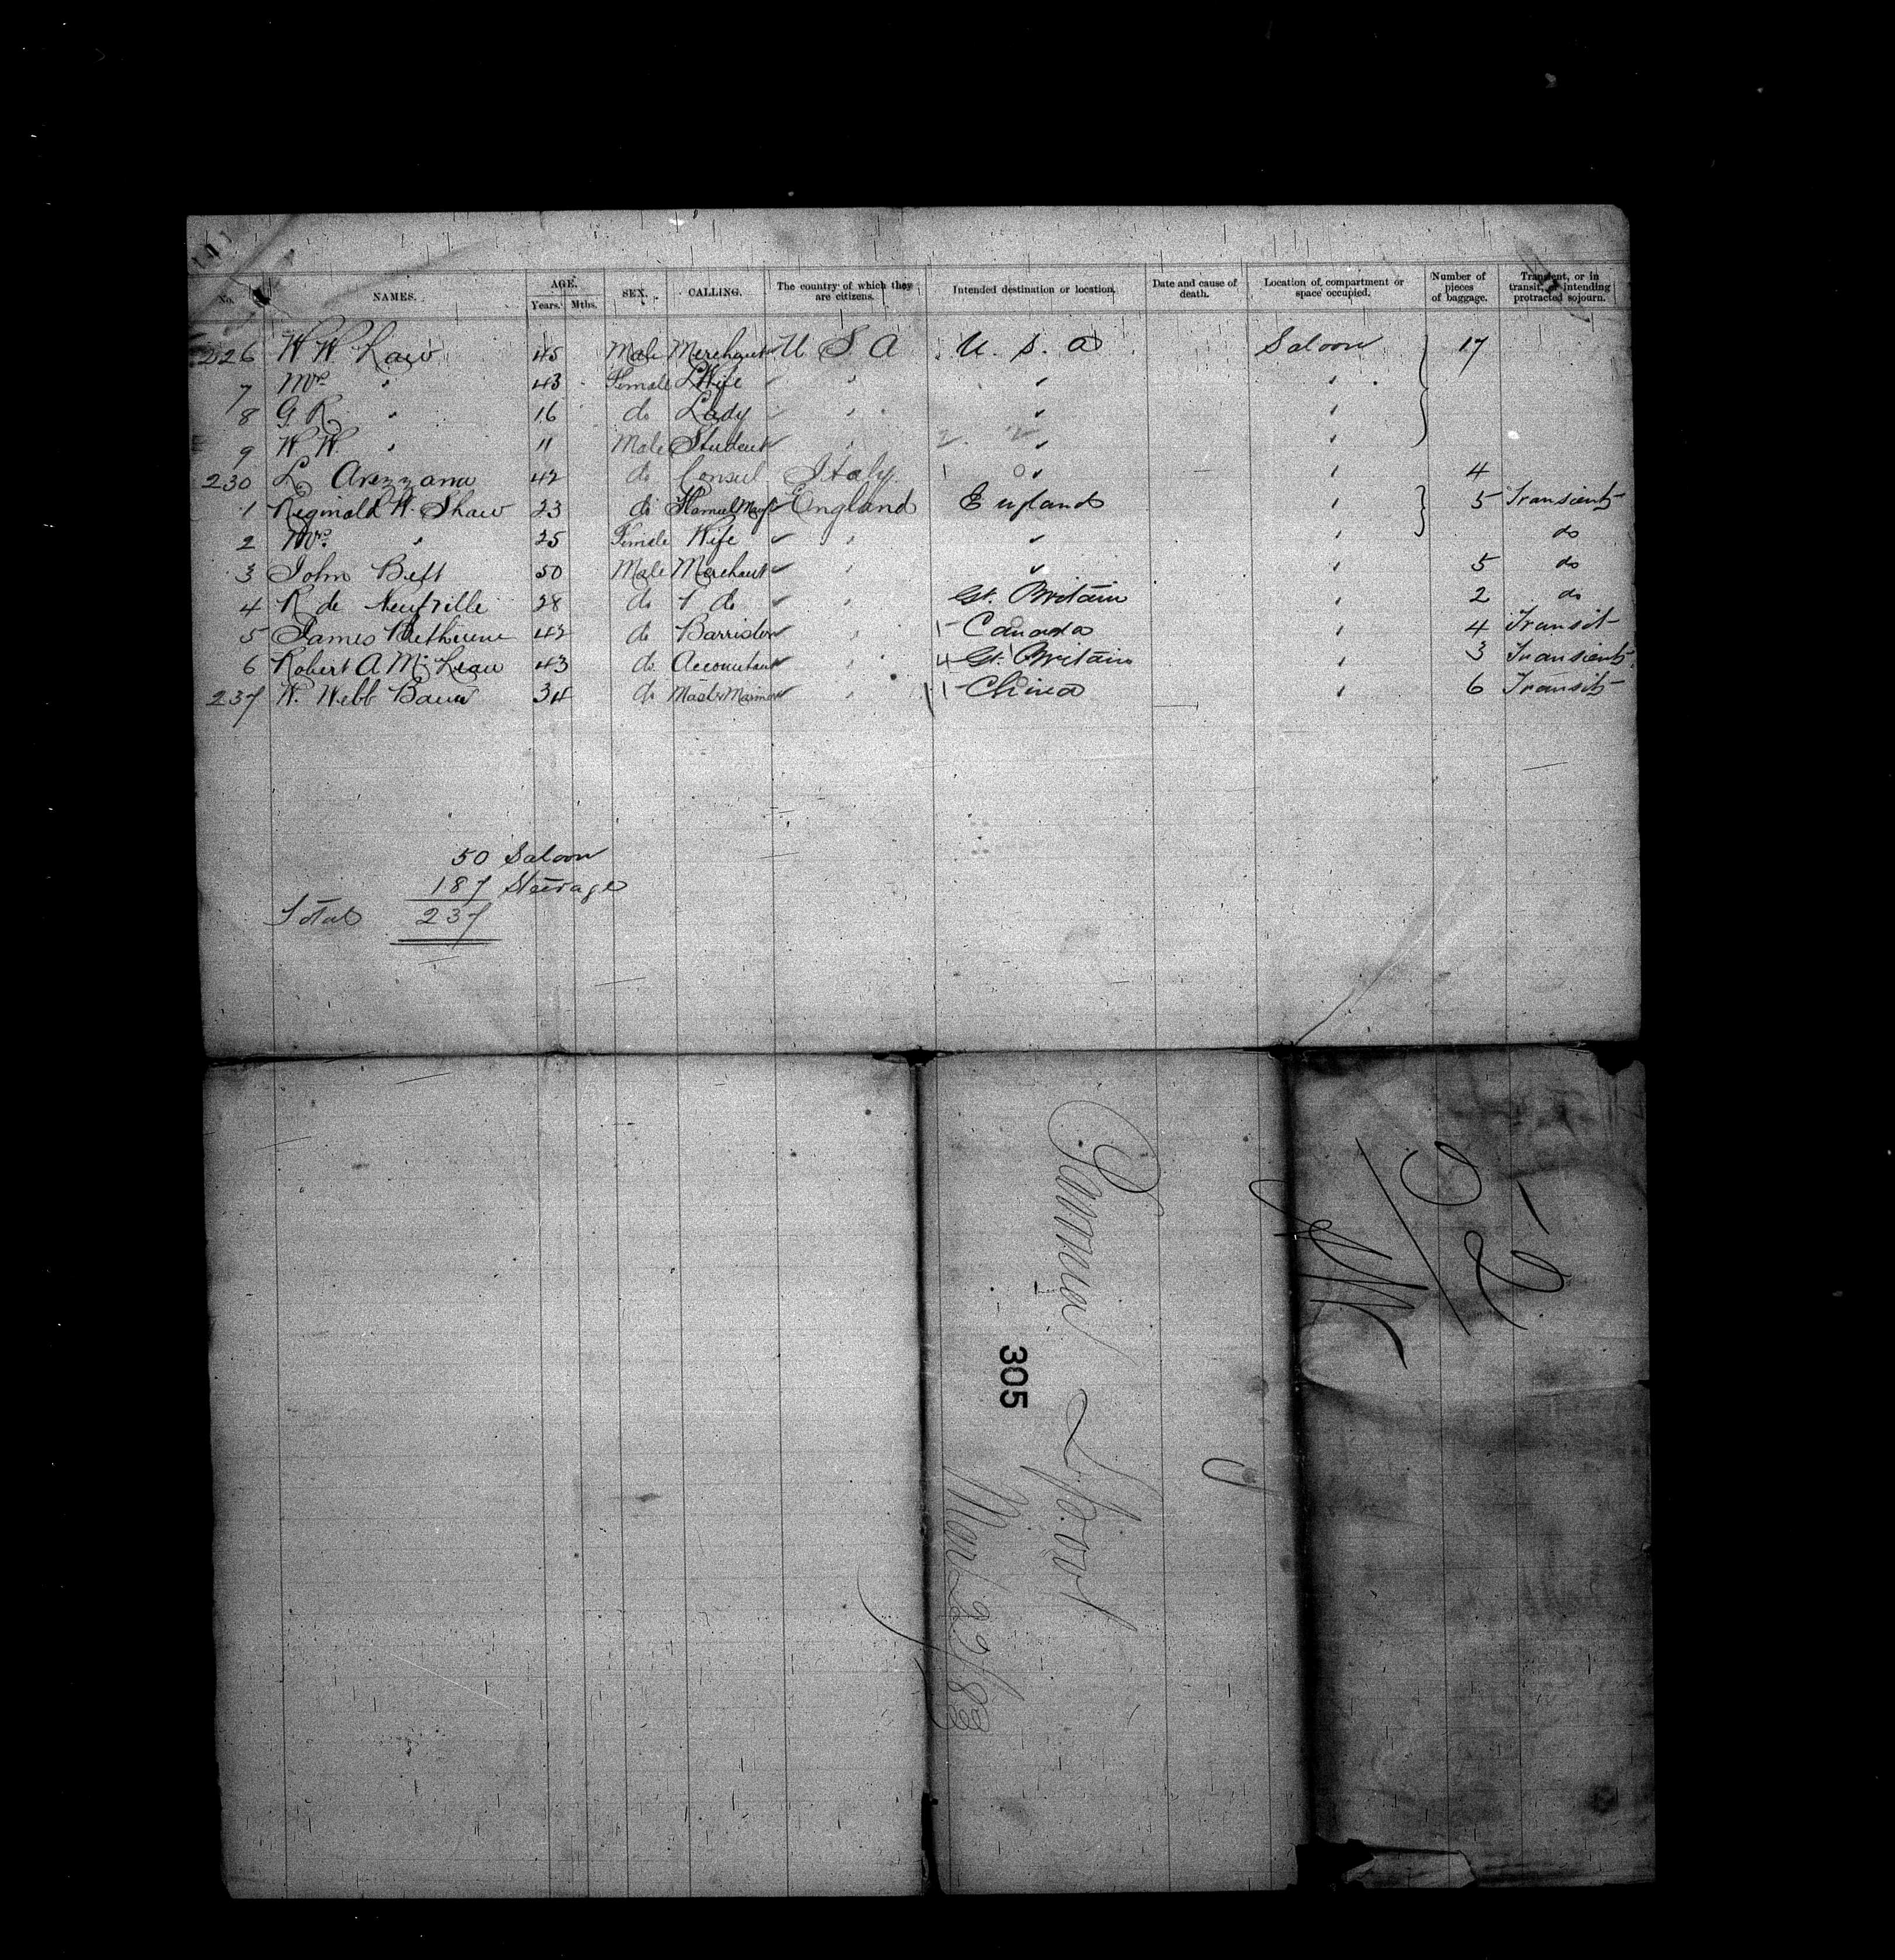 No. NAMES. AGE. Years. Mths. SEX. CALLING. The country of which they are citizens. Intended destination or location. Date and cause of death. Location of compartment or space occupied. Number of pieces of baggage. Transient, or in transit, or intending protracted sojourn.
226 W W Law 45 Male Merchant U S A U. S. A Saloon 17
7 Mrs " 43 Female Wife " " "
8 G R " 16 do Lady " " "
9 W W. " 11 Male Student " " "
230 L Arezzana 42 do Consul Italy " " 4
1 Reginald W. Shaw 23 do England England " 5 Transient
2 Mrs. " 25 Female Wife " " " do
3 John Bett 50 Male Merchant " " " 5 do
4 R de Neufville 28 do do " Gt. Britain " 2 do
5 James Bethune 42 do Barrister " 1 Canada " 4 Transit
6 Robert A McLean 43 do Accountant " 4 Gt. Britain " 3 Transient
237 W. Webb 34 do Master Mariner " 1 China " 6 Transit
50 Saloon
187 Steerage
Total 237
305